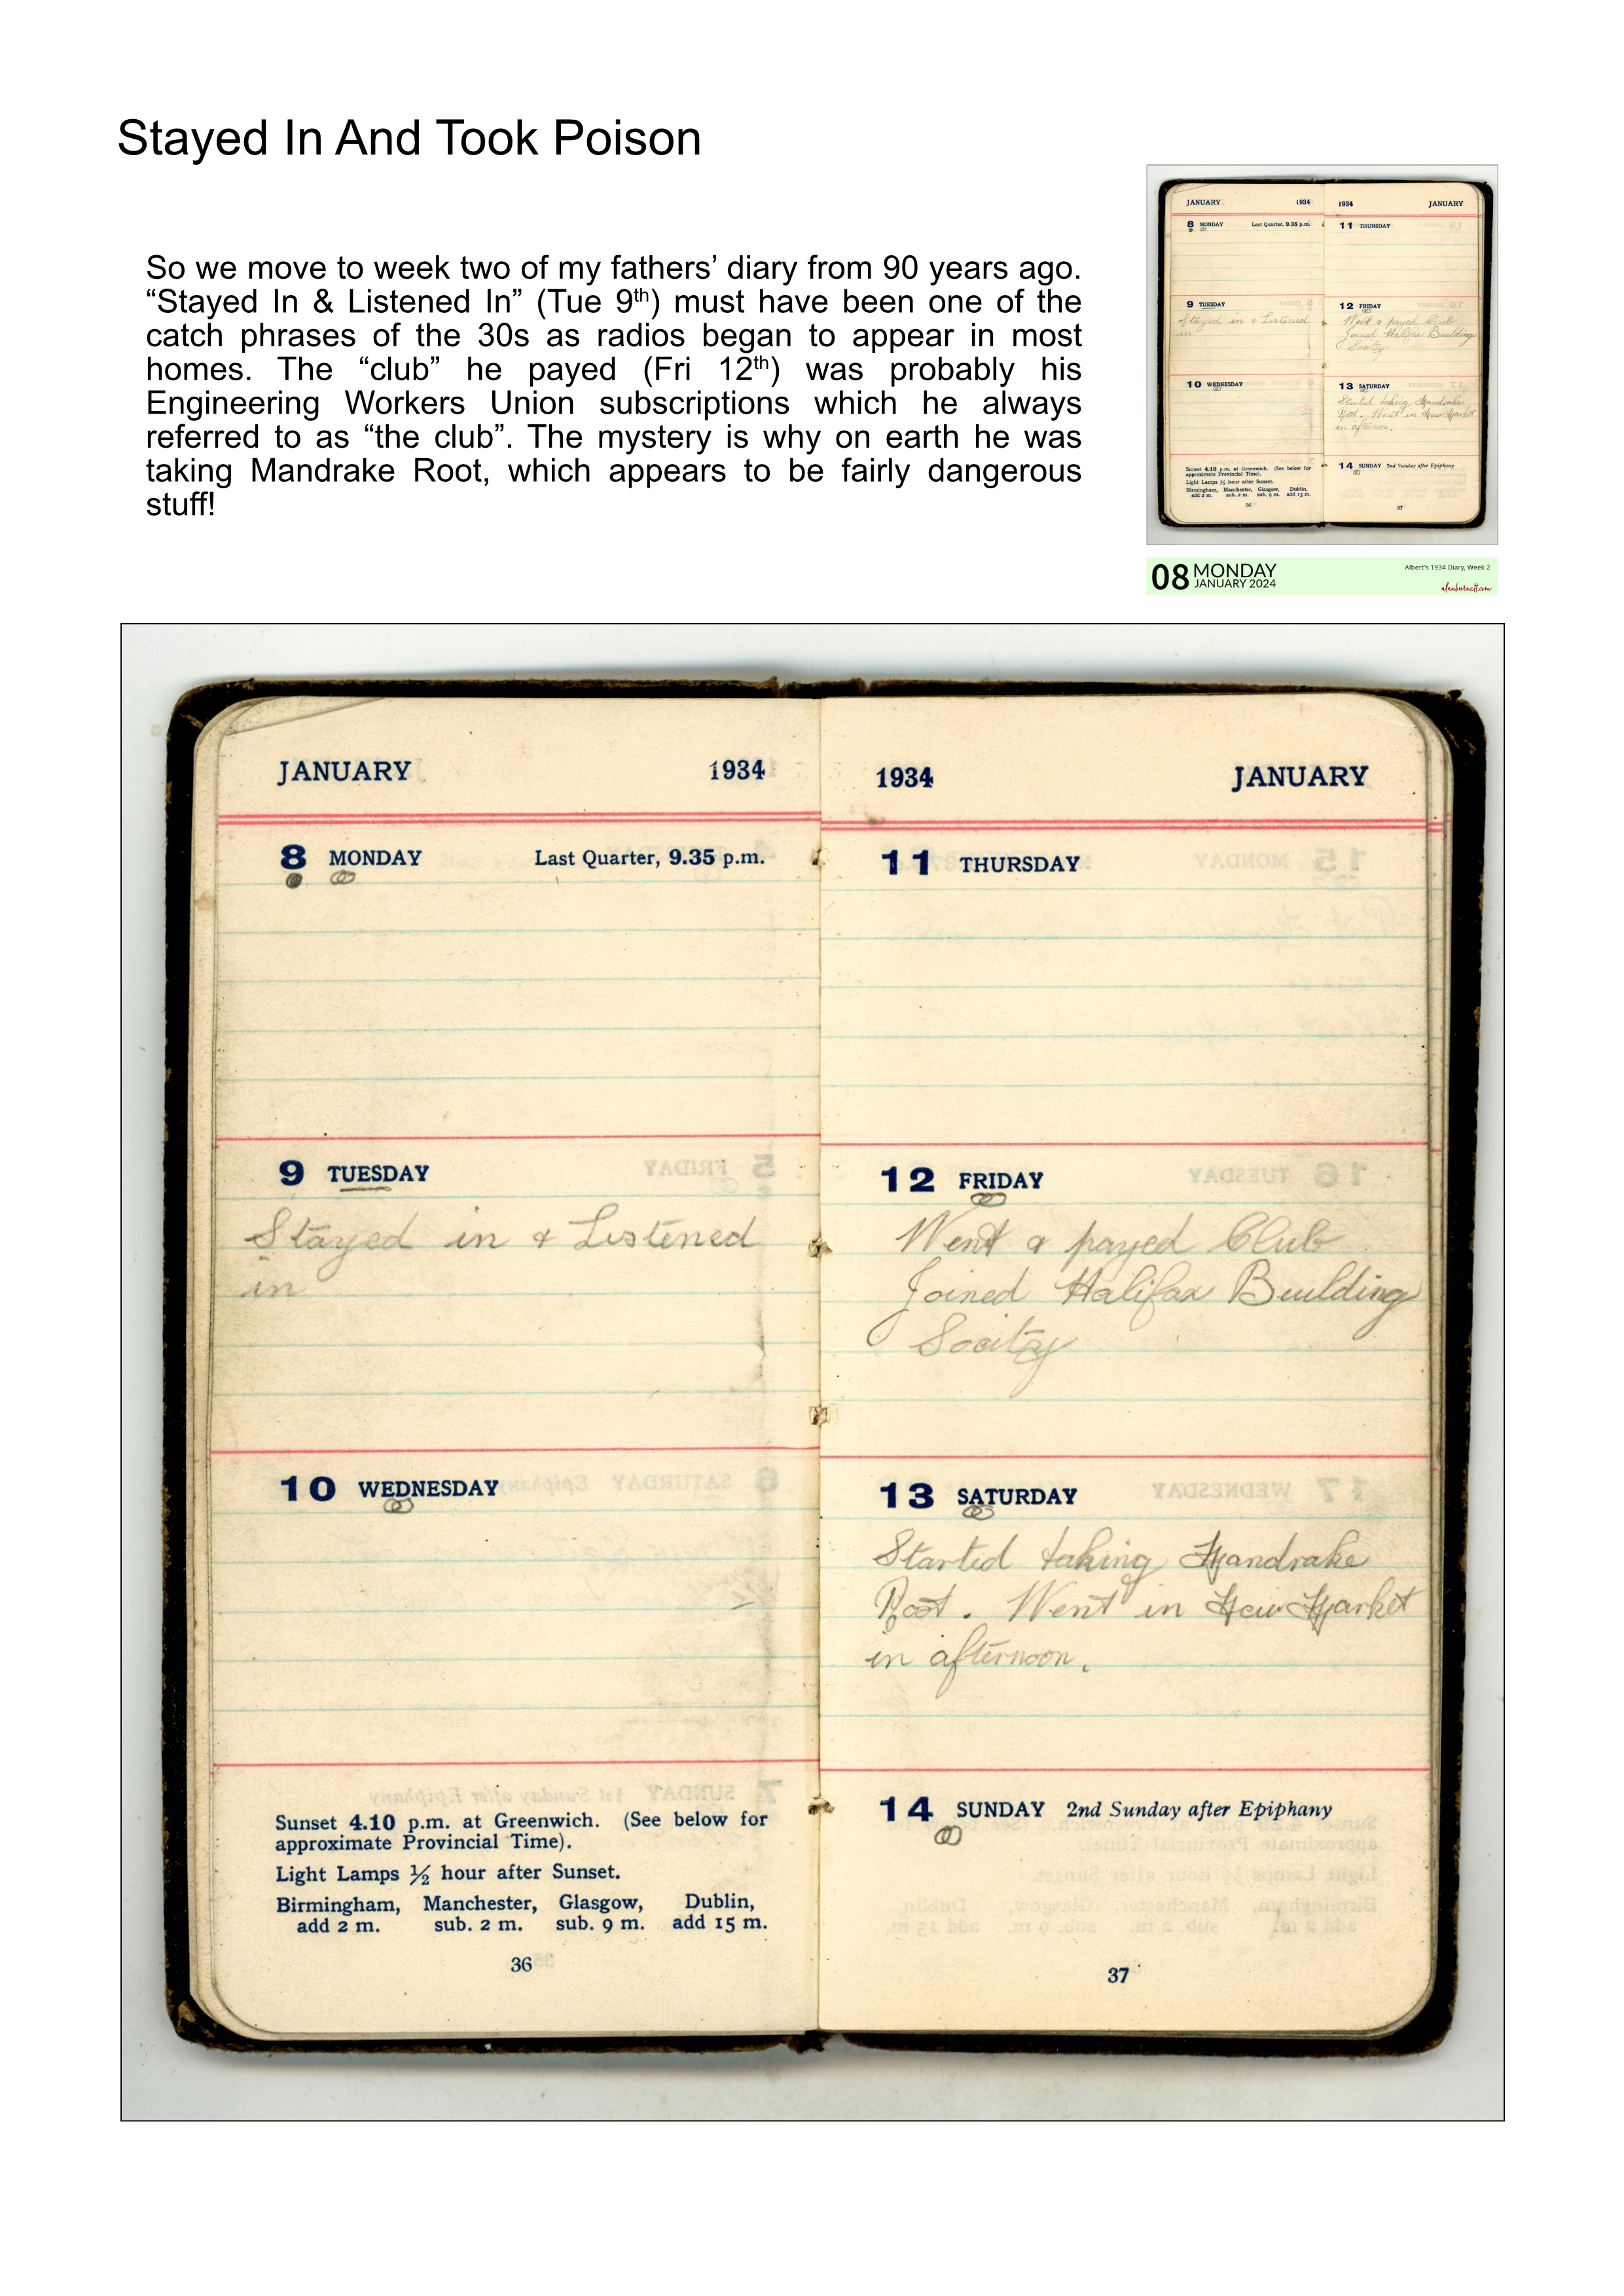 Stayed In And Took Poison
So we move to week two of my fathers’ diary from 90 years ago.
“Stayed In & Listened In” (Tue 9th) must have been one of the
catch phrases of the 30s as radios began to appear in most
homes. The “club” he payed (Fri 12th) was probably his
Engineering Workers Union subscriptions which he always
referred to as “the club”. The mystery is why on earth he was
taking Mandrake Root, which appears to be fairly dangerous
stuff!
08 MONDAY
JANUARY 2024
Albert's 1934 Diary, Week 2
alanburnett.com
JANUARY 1934
8 MONDAY Last Quarter, 9.35 p.m.
9 TUESDAY
Stayed in & Listened
in
10 WEDNESDAY
Sunset 4.10 p.m. at Greenwich. (See below for
approximate Provincial Time).
Light Lamps ½ hour after Sunset.
Birmingham, Manchester, Glasgow, Dublin,
add 2 m. sub. 2 m. sub. 9 m. add 15 m.
36
1934 JANUARY
11 THURSDAY
12 FRIDAY
Went & payed Club
Joined Halifax Building
Socity
13 SATURDAY
Started taking Mandrake
Root. Went in New Market
in afternoon.
14 SUNDAY 2nd Sunday after Epiphany
37